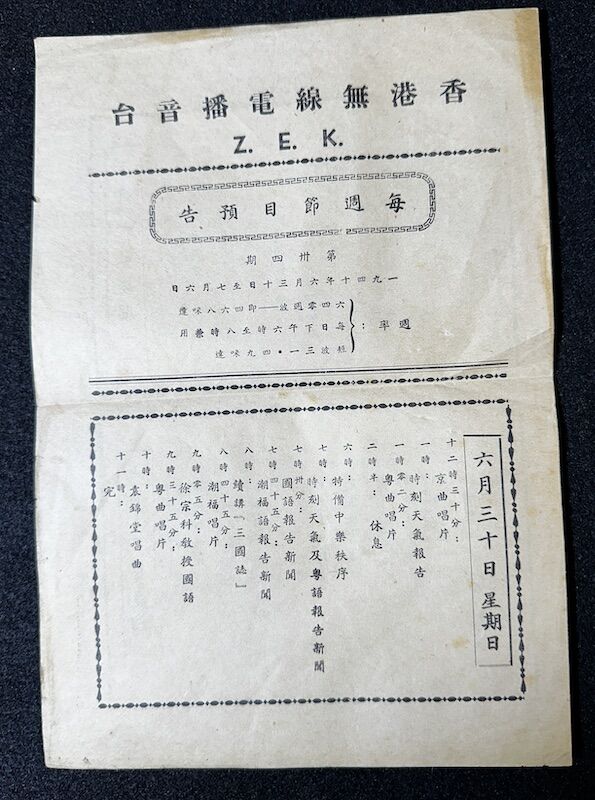 香港無線電播音台
Z. E. K.
每週節目預告
第卅四期
一九四十年六月三十日至七月六日
週率:
六四零週波——即四六八味達
每日下午六時至八時兼用
短波三一·四九味達
六月三十日 星期日
十二時三十分:
京曲唱片
一時:
時刻天氣報告
一時零二分:
粵曲唱片
二時半: 休息
六時: 特備中樂秩序
七時:
時刻天氣及粵語報告新聞
七時卅分:
國語報告新聞
七時四十五分:
潮福語報告新聞
八時:
續講「三國誌」
八時四十五分:
潮福唱片
九時零五分:
徐宗科教授國語
九時三十五分:
粵曲唱片
十時:
袁錦堂唱曲
十一時:
完